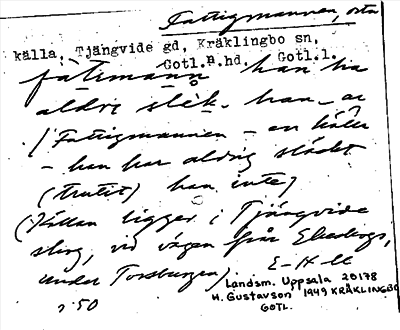 Fattigmannen, orta
källa, Tjängvide gd, Kräklingbo sn,
Gotl.n.hd. Gotl.l.
fátimann han ha
aldri slék han ar
/Fattigmannen – en källa
– han har aldrig släckt
(trutit) han inte/
(Källan ligger i Tjängvide
skog, vid vägen från Ekeskogs,
under Torsburgen) E-H-ll
Landsm. Uppsala 20178
H. Gustavson 1949 KRÄKLINGBO
GOTL.
r.50